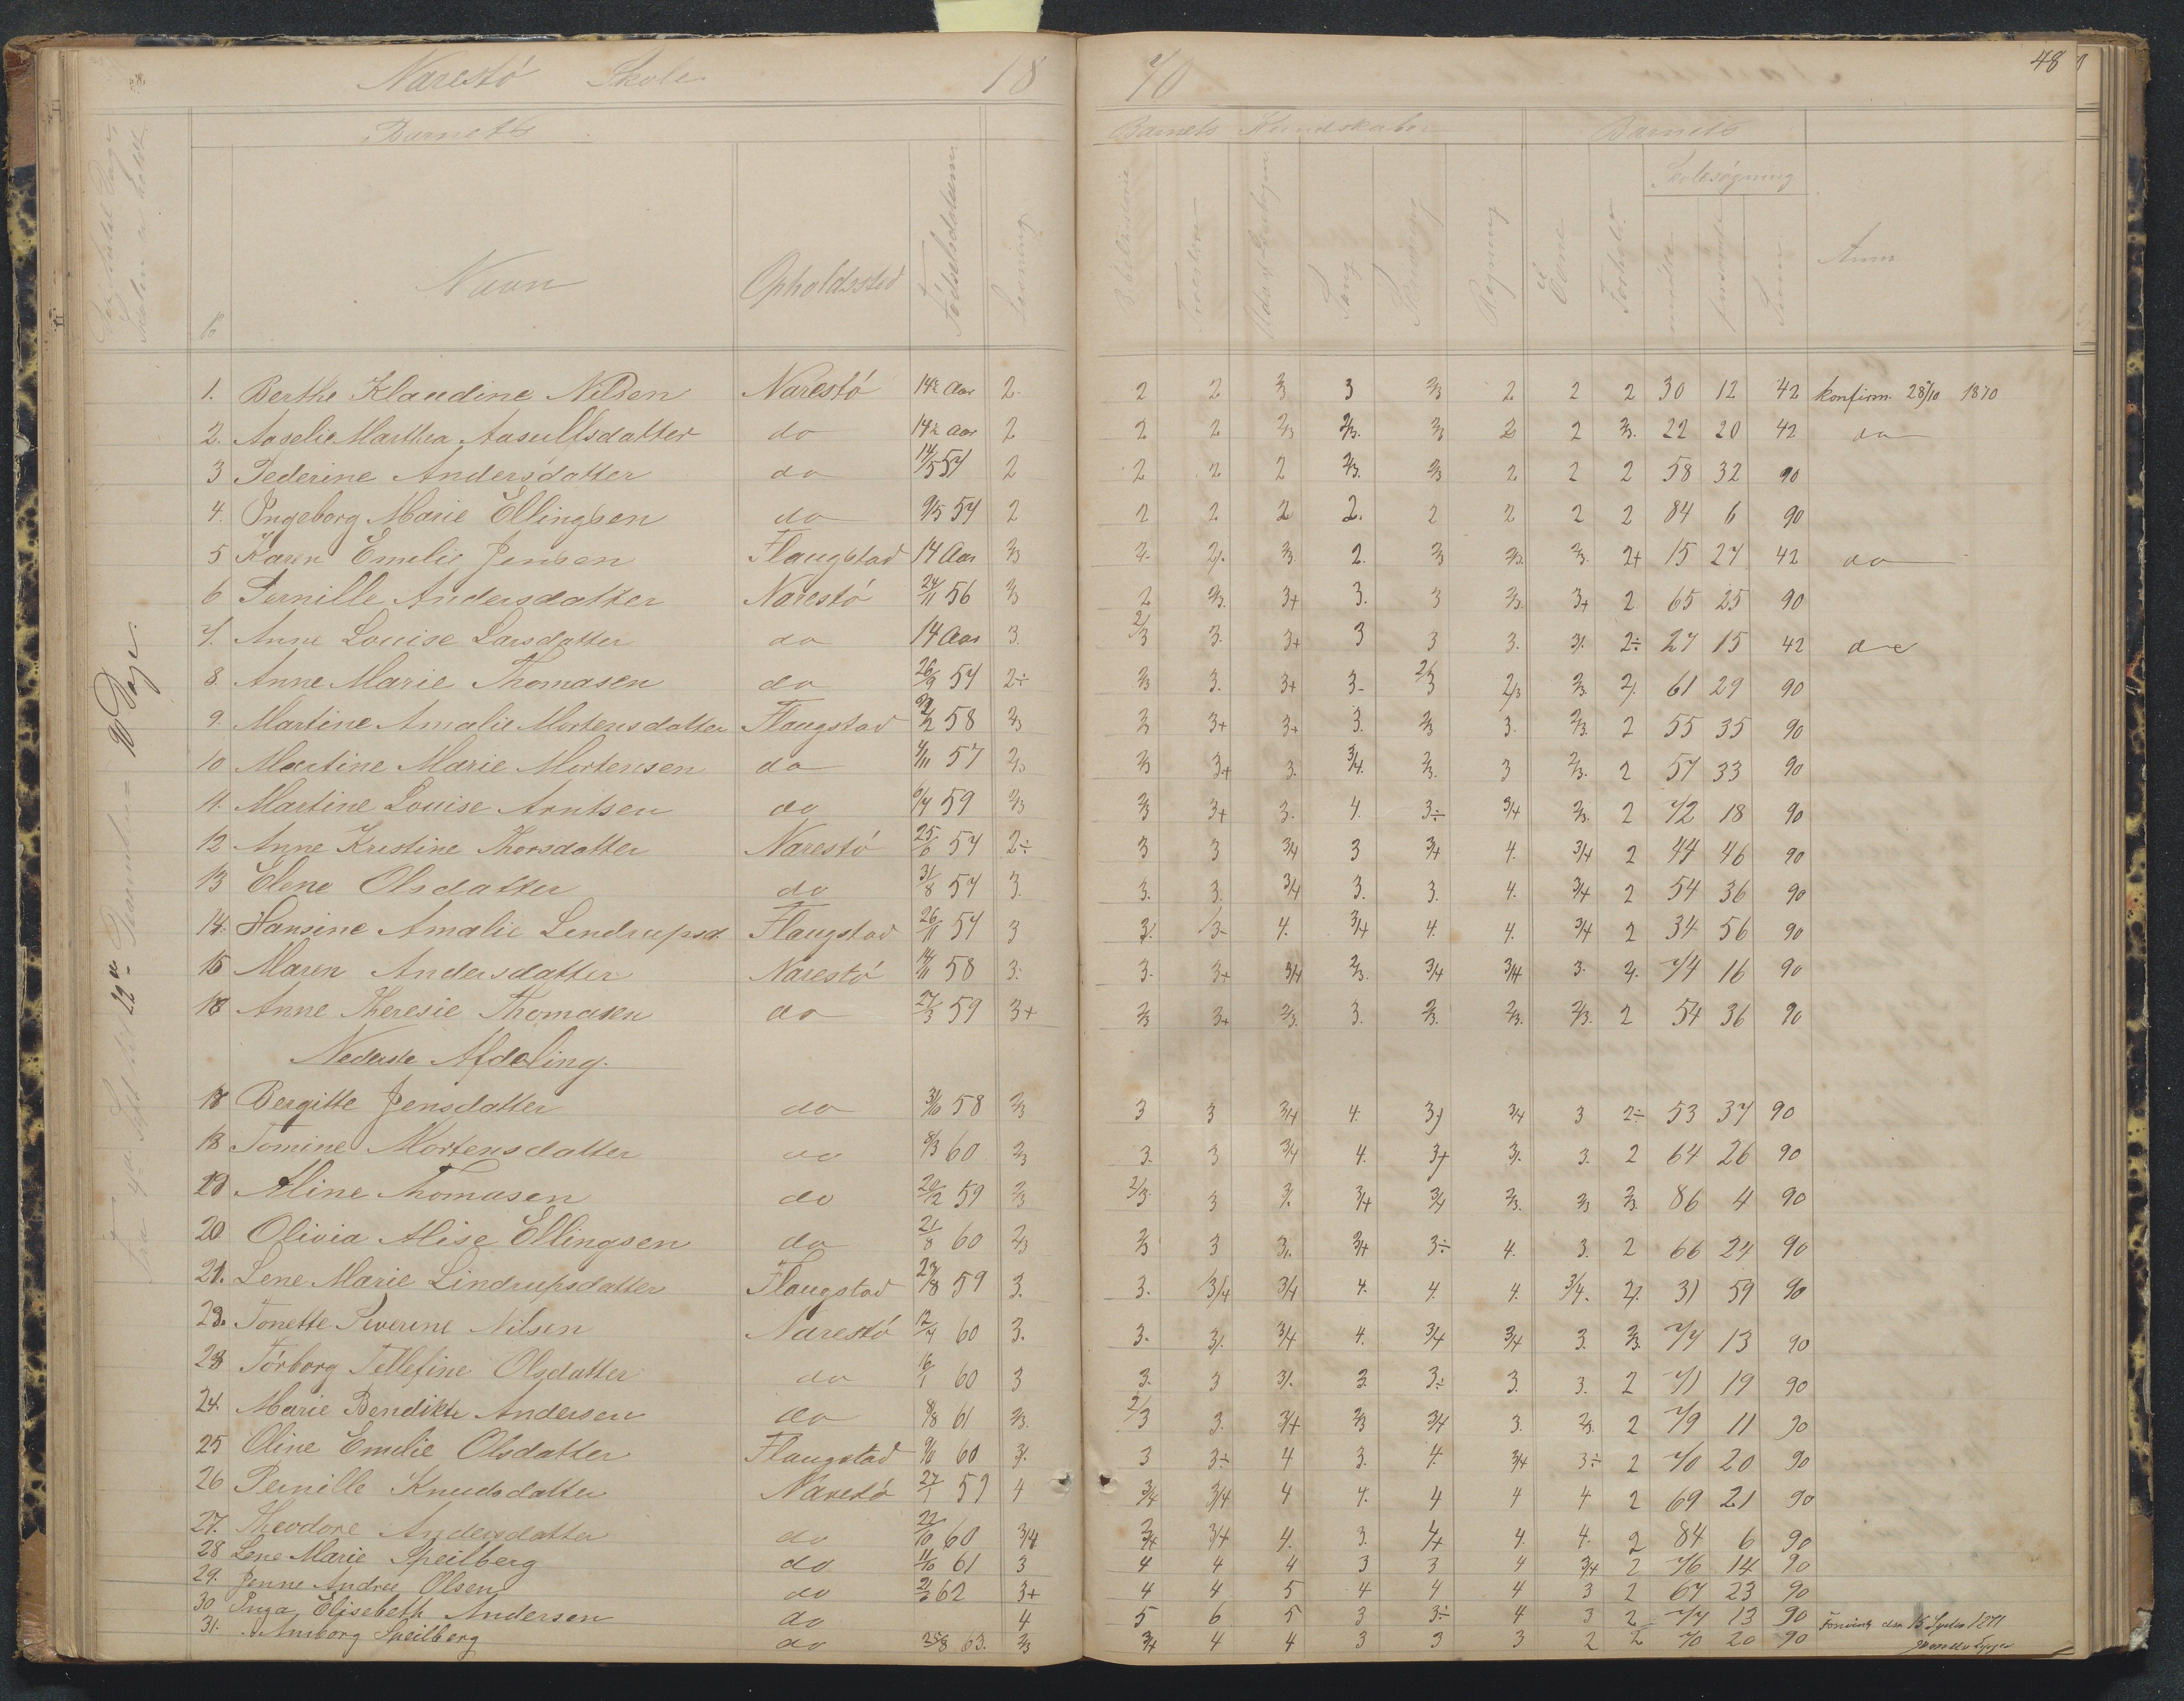 Narestö Skole 18 70 48
Barnets Barnets Kundskaber Barnets
Skolesögning
Navn Opholdssted Födselsdatum Læsning Sang Skrivning Regning Evne Forhold Anm
1. Berthe Klaudine Nilsen Narestö 14½ Aar 2. 2 2 2/3 3 2/3 2 2 2 30 12 42 konfirm. 28/10 1870
2. Aaselie Marthea Aasulfsdatter do 14½ Aar 2 2 2 2/3 2/3. 2/3 2 2 2/3. 22 20 42 do
3 Pederine Andersdatter do 14/5 57 2 2 2 2 2/3. 2/3 2 2 2 58 32 90
4. Ingeborg Marie Ellingsen do 9/5 57 2 2 2 2 2. 2 2 2 2 84 6 90
5 Karen Emelie Jensen Flaugstad 14 Aar 2/3 2. 2/. 2/3. 2. 2/3 2/3. 2/3. 2+ 15 27 42 do
6 Pernille Andersdatter Narestö 24/11 56 2/3 2 2/3. 3+ 3. 3 2/3. 3+ 2 65 25 90
7. Anne Louise Larsdatter do 14 Aar 3. 2/3 3. 3+ 3 3 3. 3/. 2÷ 27 15 42 do
8. Anne Marie Thomasen do 26/9 57 2÷ 2/3 3. 3+ 3- 2/3 2/3 2/3. 2/. 61 29 90
9. Martine Amalie Mortensdatter Flaugstad 58 2/3 2/3 3+ 3+ 3. 2/3 3. 2/3. 2 55 35 90
10 Martine Marie Mortensen do 4/11 57 2/3 2/3 3+ 3. 3/4. 2/3. 3 2/3. 2 57 33 90
11. Martine Louise Arntsen do 6/7 59 2/3 2/3 3+ 3. 4. 3÷ 3/4 2/3. 2 72 18 90
12 Anne Kristine Thorsdatter Narestö 25/6 57 2÷ 3 3 3/4 3 3/4 4. 3/4 2 44 46 90
13 Elene Olsdatter do 31/8 57 3. 3. 3. 3/4 3. 3. 4. 3/4 2 54 36 90
14. Hansine Amalie Lendrupsd. Flaugstad 26/11 57 3 3/. 3- 4. 3/4 4. 4. 3/4 2 34 56 90
15 Maren Andersdatter Narestö 14/11 58 3. 3. 3+ 3/4 2/3. 3/4 3/4 3. 2/. 74 16 90
16 Anne Theresie Thomasen do 27/3 59 3+ 2/3 3+ 2/3. 3. 2/3. 2/3. 2/3. 2 54 36 90
Nederste Afdeling.
17 Bergitte Jensdatter do 31/10 58 2/3 3 3 3/4 4. 3/ 3/4 3 2÷ 53 37 90
18 Tomine Mortensdatter do 8/3 60 2/3 3. 3 3/4 4. 3+ 3/. 3. 2 64 26 90
19 Aline Thomasen do 20/12 59 2/3 2/3. 3 3/. 3/4 3/4 2/3. 2/3 2/3. 86 4 90
20 Olivia Alise Ellingsen do 21/8 60 2/3 2/3 3 3/. 3/4 3÷ 4. 3. 2 66 24 90
21. Lene Marie Lindrupsdatter Flaugstad 27/8 59 3. 3. 3/4 3/4 4. 4. 4. 3/4. 2/. 31 59 90
22. Tonette Severine Nilsen Narestö 12/7 60 3. 3. 3/. 3/4 4. 3/4 3/4 3. 2/3. 77 13 90
23 Törborg Tellefine Olsdatter do 16/1 60 3 3. 3 3/. 3. 3÷ 3. 3. 2 71 19 90
24. Marie Bendikte Andersen do 8/8 61 2/3. 2/3 3. 3/4 2/3 3/4 3. 2/3. 2 79 11 90
25 Oline Emelie Olsdatter Flaugstad 9/11 60 3/. 3 3÷ 4 3. 4. 3/4 3÷ 2 70 20 90
26 Pernille Knudsdatter Narestö 27/1 59 4 3/4 3/4 4 4. 4 4 4 2 69 21 90
27. Theodore Andersdatter do 22/10 60 3/4 3/4 3/4 4. 3. 4 4. 4. 2 84 6 90
28 Lene Marie Speilberg do 11/10 61 3 4 4 4 3 3 4 3/4 2 76 14 90
29. Jenne Andrea Olsen do 62 3+ 4 4 5 4 4 4 3 2 67 23 90
30 Inga Elisebeth Andersen do 4 5 6 5 3 3÷ 4 3 2 77 13 90
31. Amborg Speilberg do 25/8 63. 2/3 3/4 4 4 3 3 3 2 2 70 20 90
90 Dage.